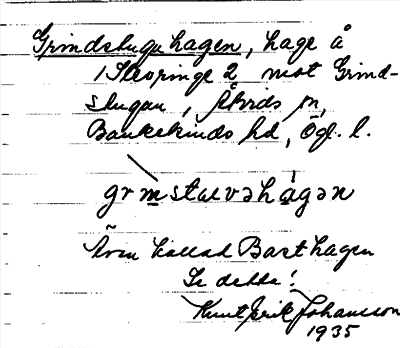 Grindstuguhagen, hage å
1 Skoringe 2 mot Grind-
stugan, Åtvids sn,
Bankekinds hd, Ögl. l.
grinstuvəhagən
Även kallad Barthagen
Se detta!
Knut Erik Johansson
1935